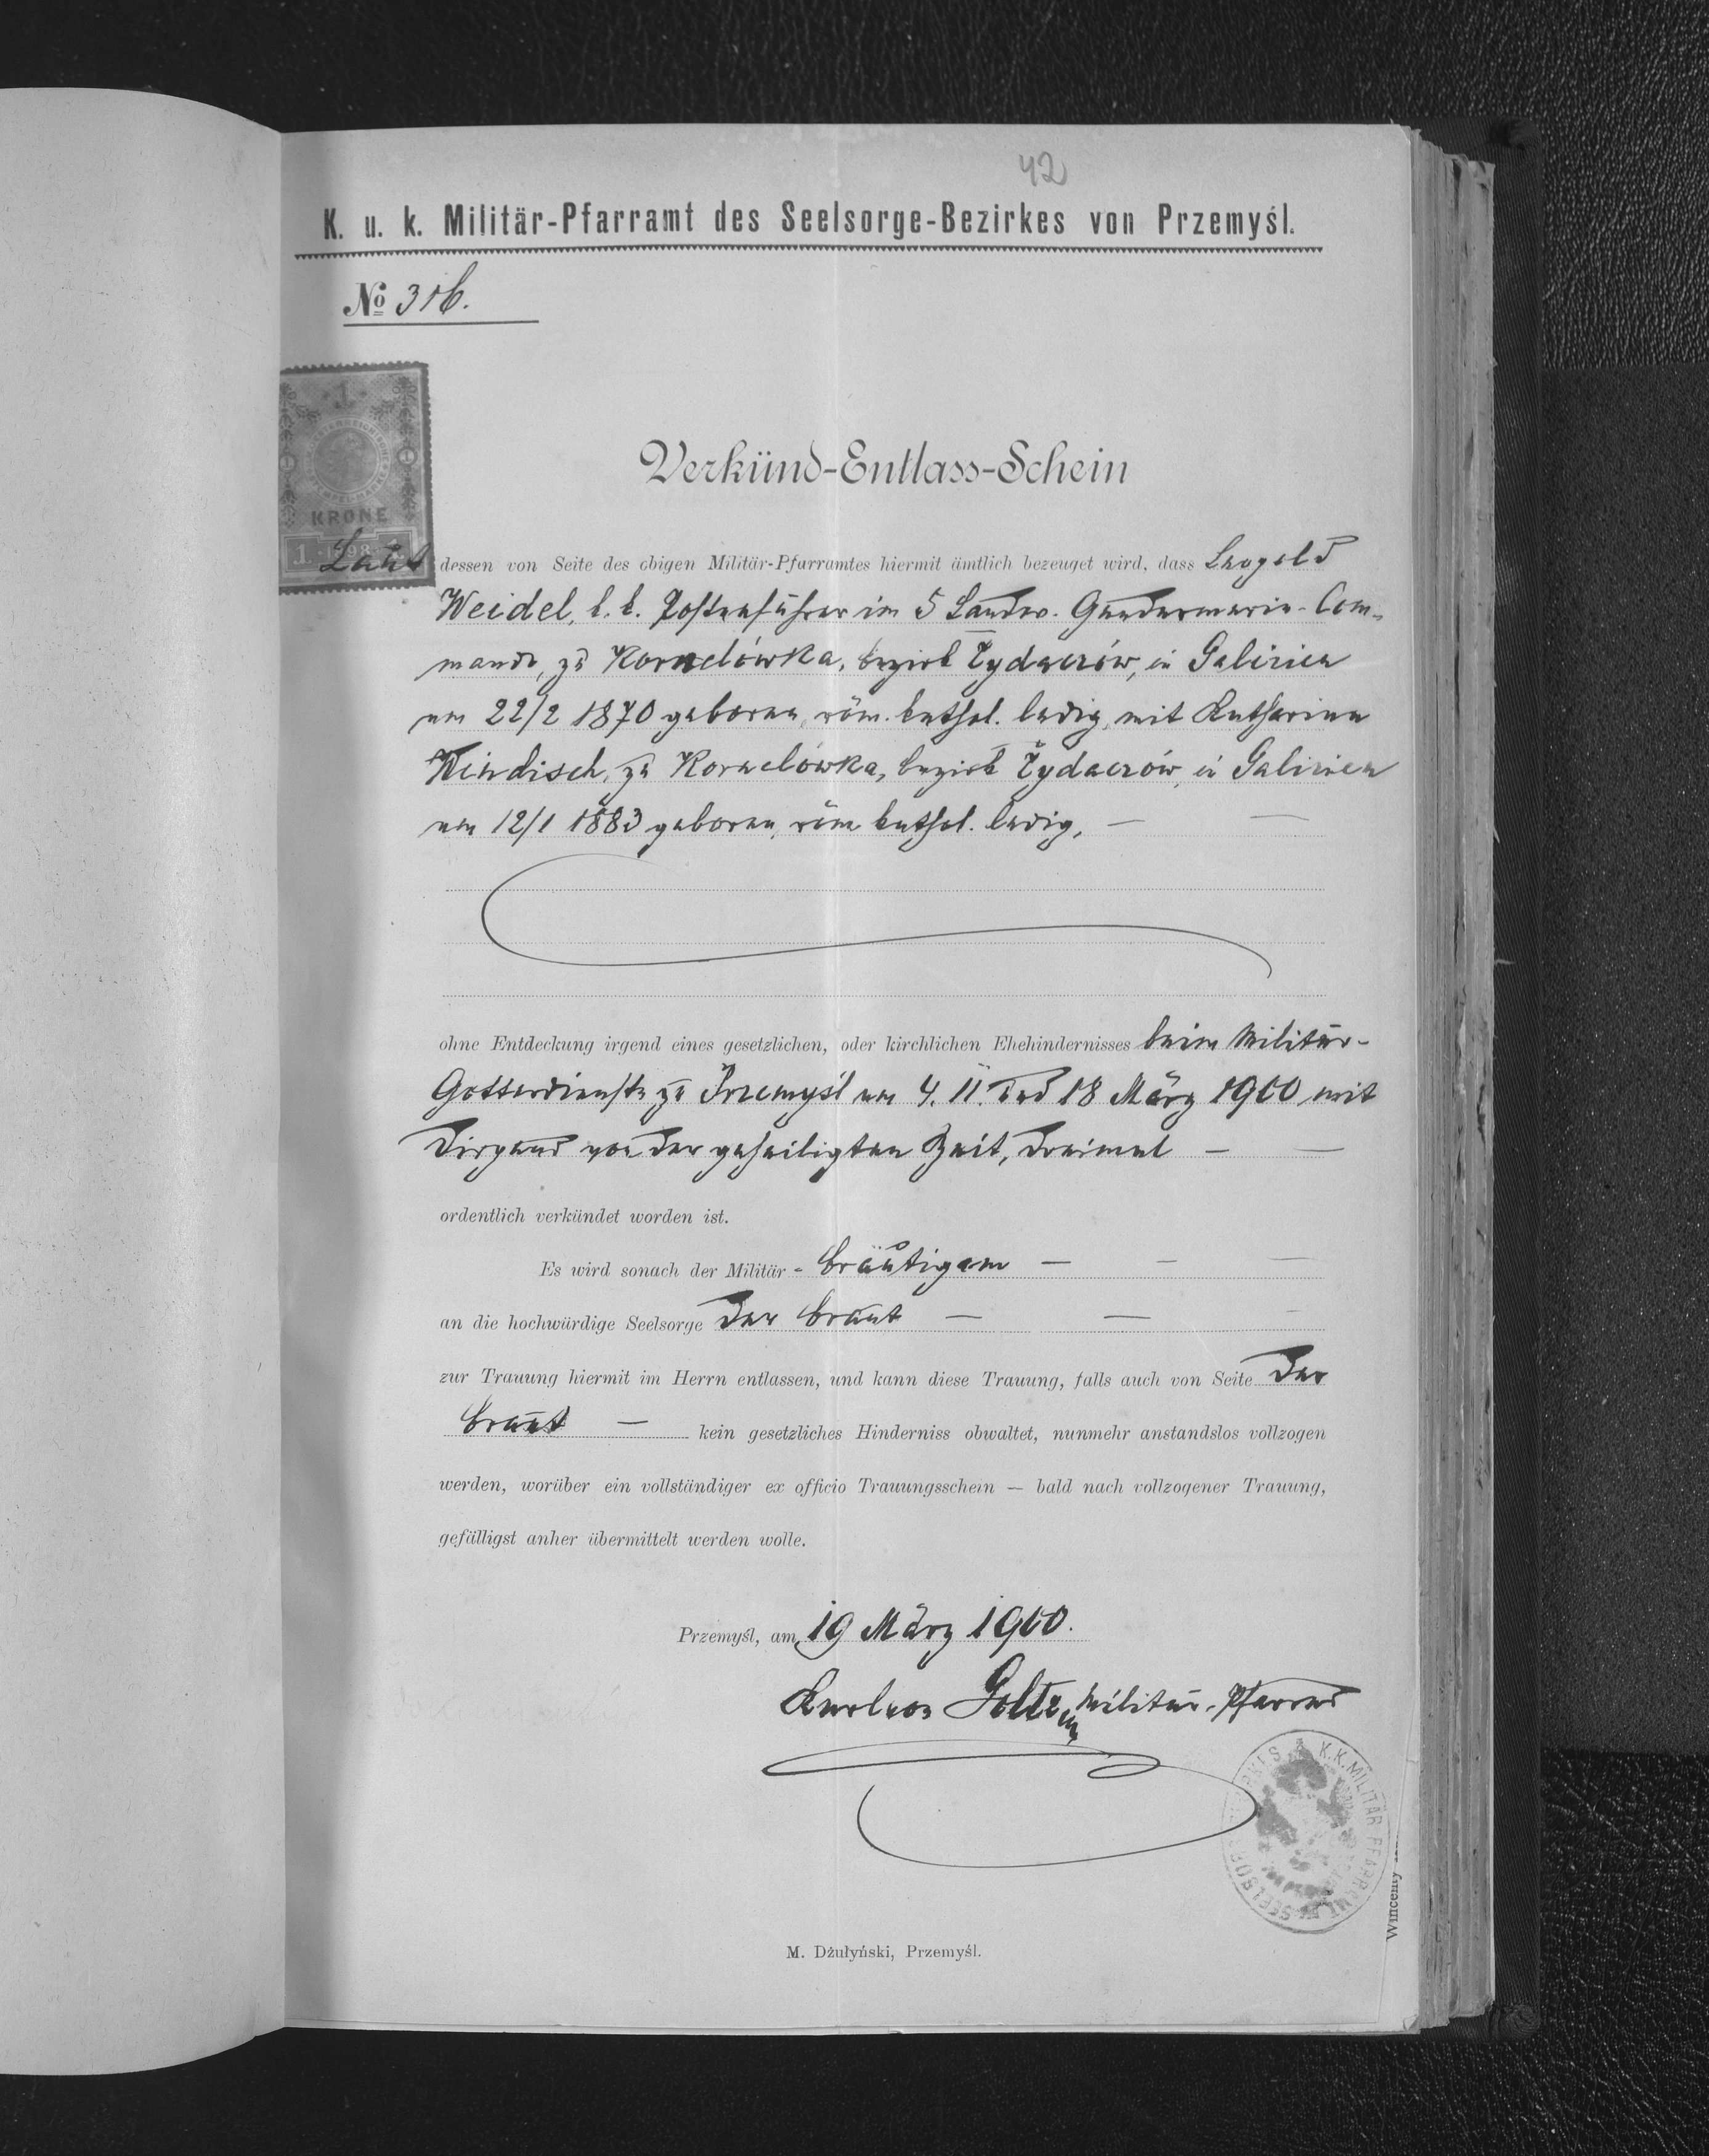 42
K. u. k. Militär-Pfarramt des Seelsorge-Bezirkes von Przemyśl.
No 316.
1
KRONE
1. 1898 1.
Laut dessen von Seite des obigen Militär-Pfarramtes hiermit ämtlich bezeuget wird, dass Leopold
Weidel, k. k. Postenführer im 5 Landes-Gendarmerie-Com-
mando, zu Kornelówka, bezirk Żydaczów, in Galizien
am 22/2 1870 geboren, röm. kathol. ledig, mit Katharina
Windisch, zu Kornelówka, bezirk Żydaczów, in Galizien
am 12/1 1883 geboren, röm kathol. ledig, — —
ohne Entdeckung irgend eines gesetzlichen, oder kirchlichen Ehehindernisses beim Militär-
Gottesdienste zu Przemyśl am 4. 11. und 18 März 1900 mit
Dispens von der geheiligten Zeit, dreimal — —
ordentlich verkündet worden ist.
Es wird sonach der Militär- bräutigam — — —
an die hochwürdige Seelsorge der braut — — —
zur Trauung hiermit im Herrn entlassen, und kann diese Trauung, falls auch von Seite der
braut — kein gesetzliches Hinderniss obwaltet, nunmehr anstandslos vollzogen
werden, worüber ein vollständiger ex officio Trauungsschein — bald nach vollzogener Trauung,
gefälligst anher übermittelt werden wolle.
Przemyśl, am 19 März 1900.
Militär-Pfarrer
K. K. MILITÄR PFARRAMT
M. Dżułyński, Przemyśl.
Wincenty
Verkünd-Entlass-Schein